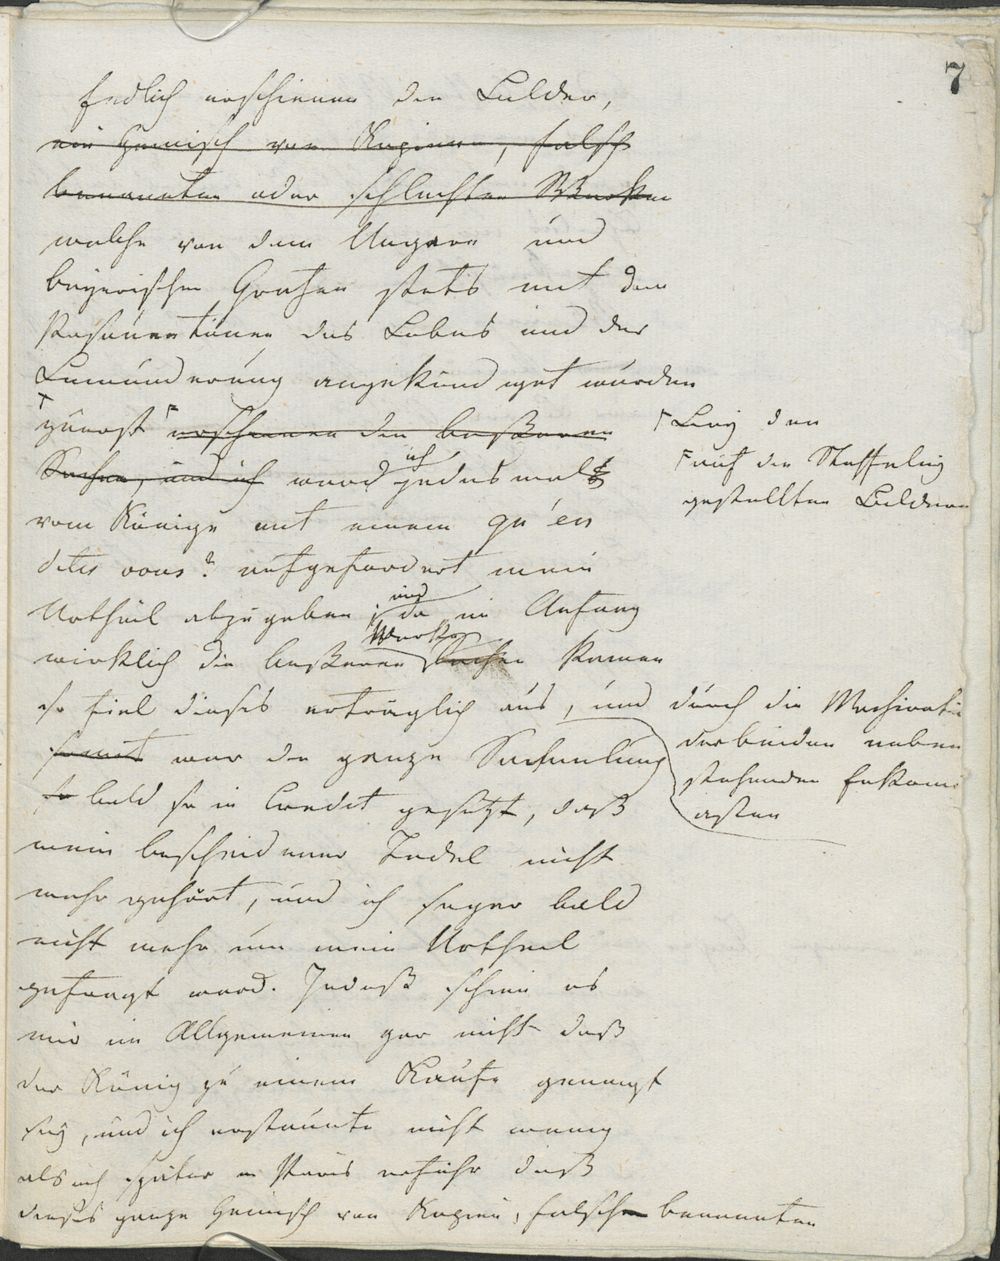 7
Endlich erschienen die Bilder,
ein Gemisch von Kopieen, falsch
benannten oder schlechten Werken
welche von dem Ungarn und
bayerischen Grafen stets mit den
Posaunentönen des Lobes und der
Bewunderung angekündiget wurden
zuerst erschienen die beßeren
Sachen, und ich ward ich jedesmal
vom Könige mit einem qu'en
dites vous? aufgefordert mein
Urtheil abzugeben; und da im Anfang
wirklich die beßeren Werke Sachen kamen
so fiel dieses erträglich aus, und
somit war die ganze Sammlung
so bald so in Credit gesetzt, daß
mein bescheidener Tadel nicht
mehr gehört, und ich sogar bald
nicht mehr um mein Urtheil
gefragt ward. Indeß schien es
mir im Allgemeinen gar nicht daß
der König zu einem Kaufe geneigt
sey, und ich erstaunte nicht wenig
als ich später in Paris erfuhr daß
dieses ganze Gemisch von Kopien, falsch benannten
Bey den
auf die Staffeley
gestellten Bildern
durch die
der beiden neben
stehenden Enkomi
asten